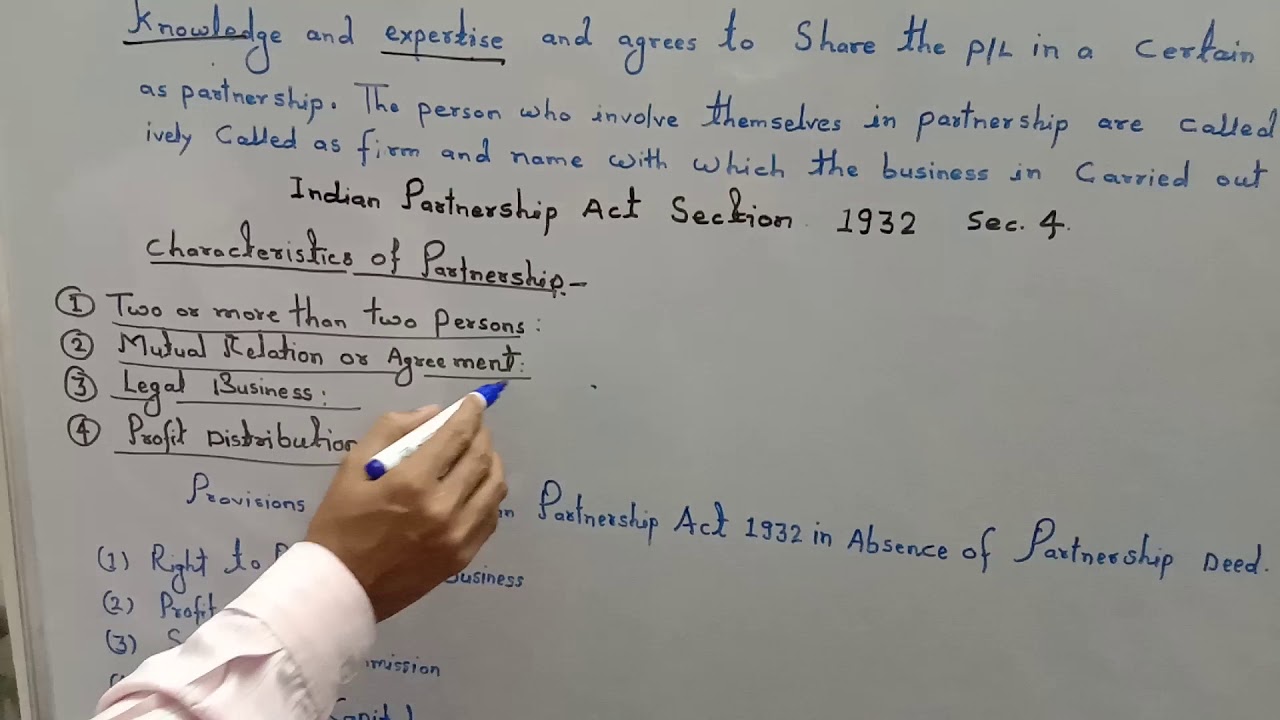 Knowledge and expertise and agrees to Share the P/L in a Certain
as partnership. The person who involve themselves in partnership are called
ively Called as firm and name with which the business in Carried out
Indian Partnership Act Section 1932 Sec. 4.
Characteristics of Partnership.-
① Two or more than two persons:
② Mutual Relation or Agreement:
③ Legal Business:
④ Profit Distribution
Provisions Partnership Act 1932 in Absence of Partnership Deed.
(1) Right to Business
(2) Profit
(3) S
mission